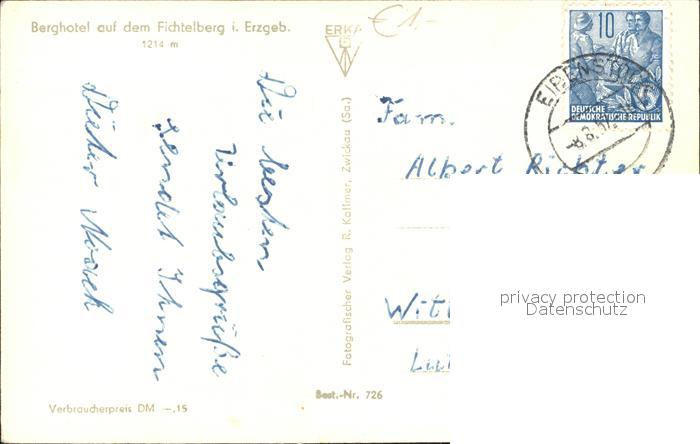 Berghotel auf dem Fichtelberg i. Erzgeb.
1214 m
ERKA
€ 1.-
10
DEUTSCHE
DEMOKRATISCHE REPUBLIK
EIBENSTOCK
-8.8.57
Die besten
Urlaubsgrüße
sendet Ihnen
Dieter
Fotografischer Verlag R. Kallmer, Zwickau (Sa.)
Fam.
Albert Richter
Witt
privacy protection
Datenschutz
Best.-Nr. 726
Verbraucherpreis DM —,15